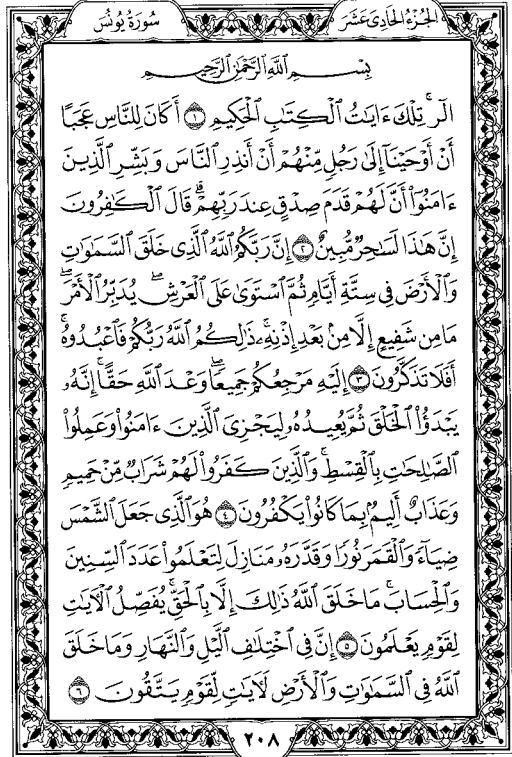 سُورَةُ يُونُسَ
الجُزْءُ الحَادِىَ عَشَرَ
بِسْمِ ٱللَّهِ ٱلرَّحْمَٰنِ ٱلرَّحِيمِ
الٓر ۚ تِلْكَ ءَايَٰتُ ٱلْكِتَٰبِ ٱلْحَكِيمِ ۝١ أَكَانَ لِلنَّاسِ عَجَبًا
أَنْ أَوْحَيْنَآ إِلَىٰ رَجُلٍ مِّنْهُمْ أَنْ أَنذِرِ ٱلنَّاسَ وَبَشِّرِ ٱلَّذِينَ
ءَامَنُوٓا۟ أَنَّ لَهُمْ قَدَمَ صِدْقٍ عِندَ رَبِّهِمْ ۗ قَالَ ٱلْكَٰفِرُونَ
إِنَّ هَٰذَا لَسَٰحِرٌ مُّبِينٌ ۝٢ إِنَّ رَبَّكُمُ ٱللَّهُ ٱلَّذِى خَلَقَ ٱلسَّمَٰوَٰتِ
وَٱلْأَرْضَ فِى سِتَّةِ أَيَّامٍ ثُمَّ ٱسْتَوَىٰ عَلَى ٱلْعَرْشِ ۖ يُدَبِّرُ ٱلْأَمْرَ ۖ
مَا مِن شَفِيعٍ إِلَّا مِنۢ بَعْدِ إِذْنِهِۦ ۚ ذَٰلِكُمُ ٱللَّهُ رَبُّكُمْ فَٱعْبُدُوهُ ۚ
أَفَلَا تَذَكَّرُونَ ۝٣ إِلَيْهِ مَرْجِعُكُمْ جَمِيعًا ۖ وَعْدَ ٱللَّهِ حَقًّا ۚ إِنَّهُۥ
يَبْدَؤُا۟ ٱلْخَلْقَ ثُمَّ يُعِيدُهُۥ لِيَجْزِىَ ٱلَّذِينَ ءَامَنُوا۟ وَعَمِلُوا۟
ٱلصَّٰلِحَٰتِ بِٱلْقِسْطِ ۚ وَٱلَّذِينَ كَفَرُوا۟ لَهُمْ شَرَابٌ مِّنْ حَمِيمٍ
وَعَذَابٌ أَلِيمٌۢ بِمَا كَانُوا۟ يَكْفُرُونَ ۝٤ هُوَ ٱلَّذِى جَعَلَ ٱلشَّمْسَ
ضِيَآءً وَٱلْقَمَرَ نُورًا وَقَدَّرَهُۥ مَنَازِلَ لِتَعْلَمُوا۟ عَدَدَ ٱلسِّنِينَ
وَٱلْحِسَابَ ۚ مَا خَلَقَ ٱللَّهُ ذَٰلِكَ إِلَّا بِٱلْحَقِّ ۚ يُفَصِّلُ ٱلْءَايَٰتِ
لِقَوْمٍ يَعْلَمُونَ ۝٥ إِنَّ فِى ٱخْتِلَٰفِ ٱلَّيْلِ وَٱلنَّهَارِ وَمَا خَلَقَ
ٱللَّهُ فِى ٱلسَّمَٰوَٰتِ وَٱلْأَرْضِ لَءَايَٰتٍ لِّقَوْمٍ يَتَّقُونَ ۝٦
٢٠٨